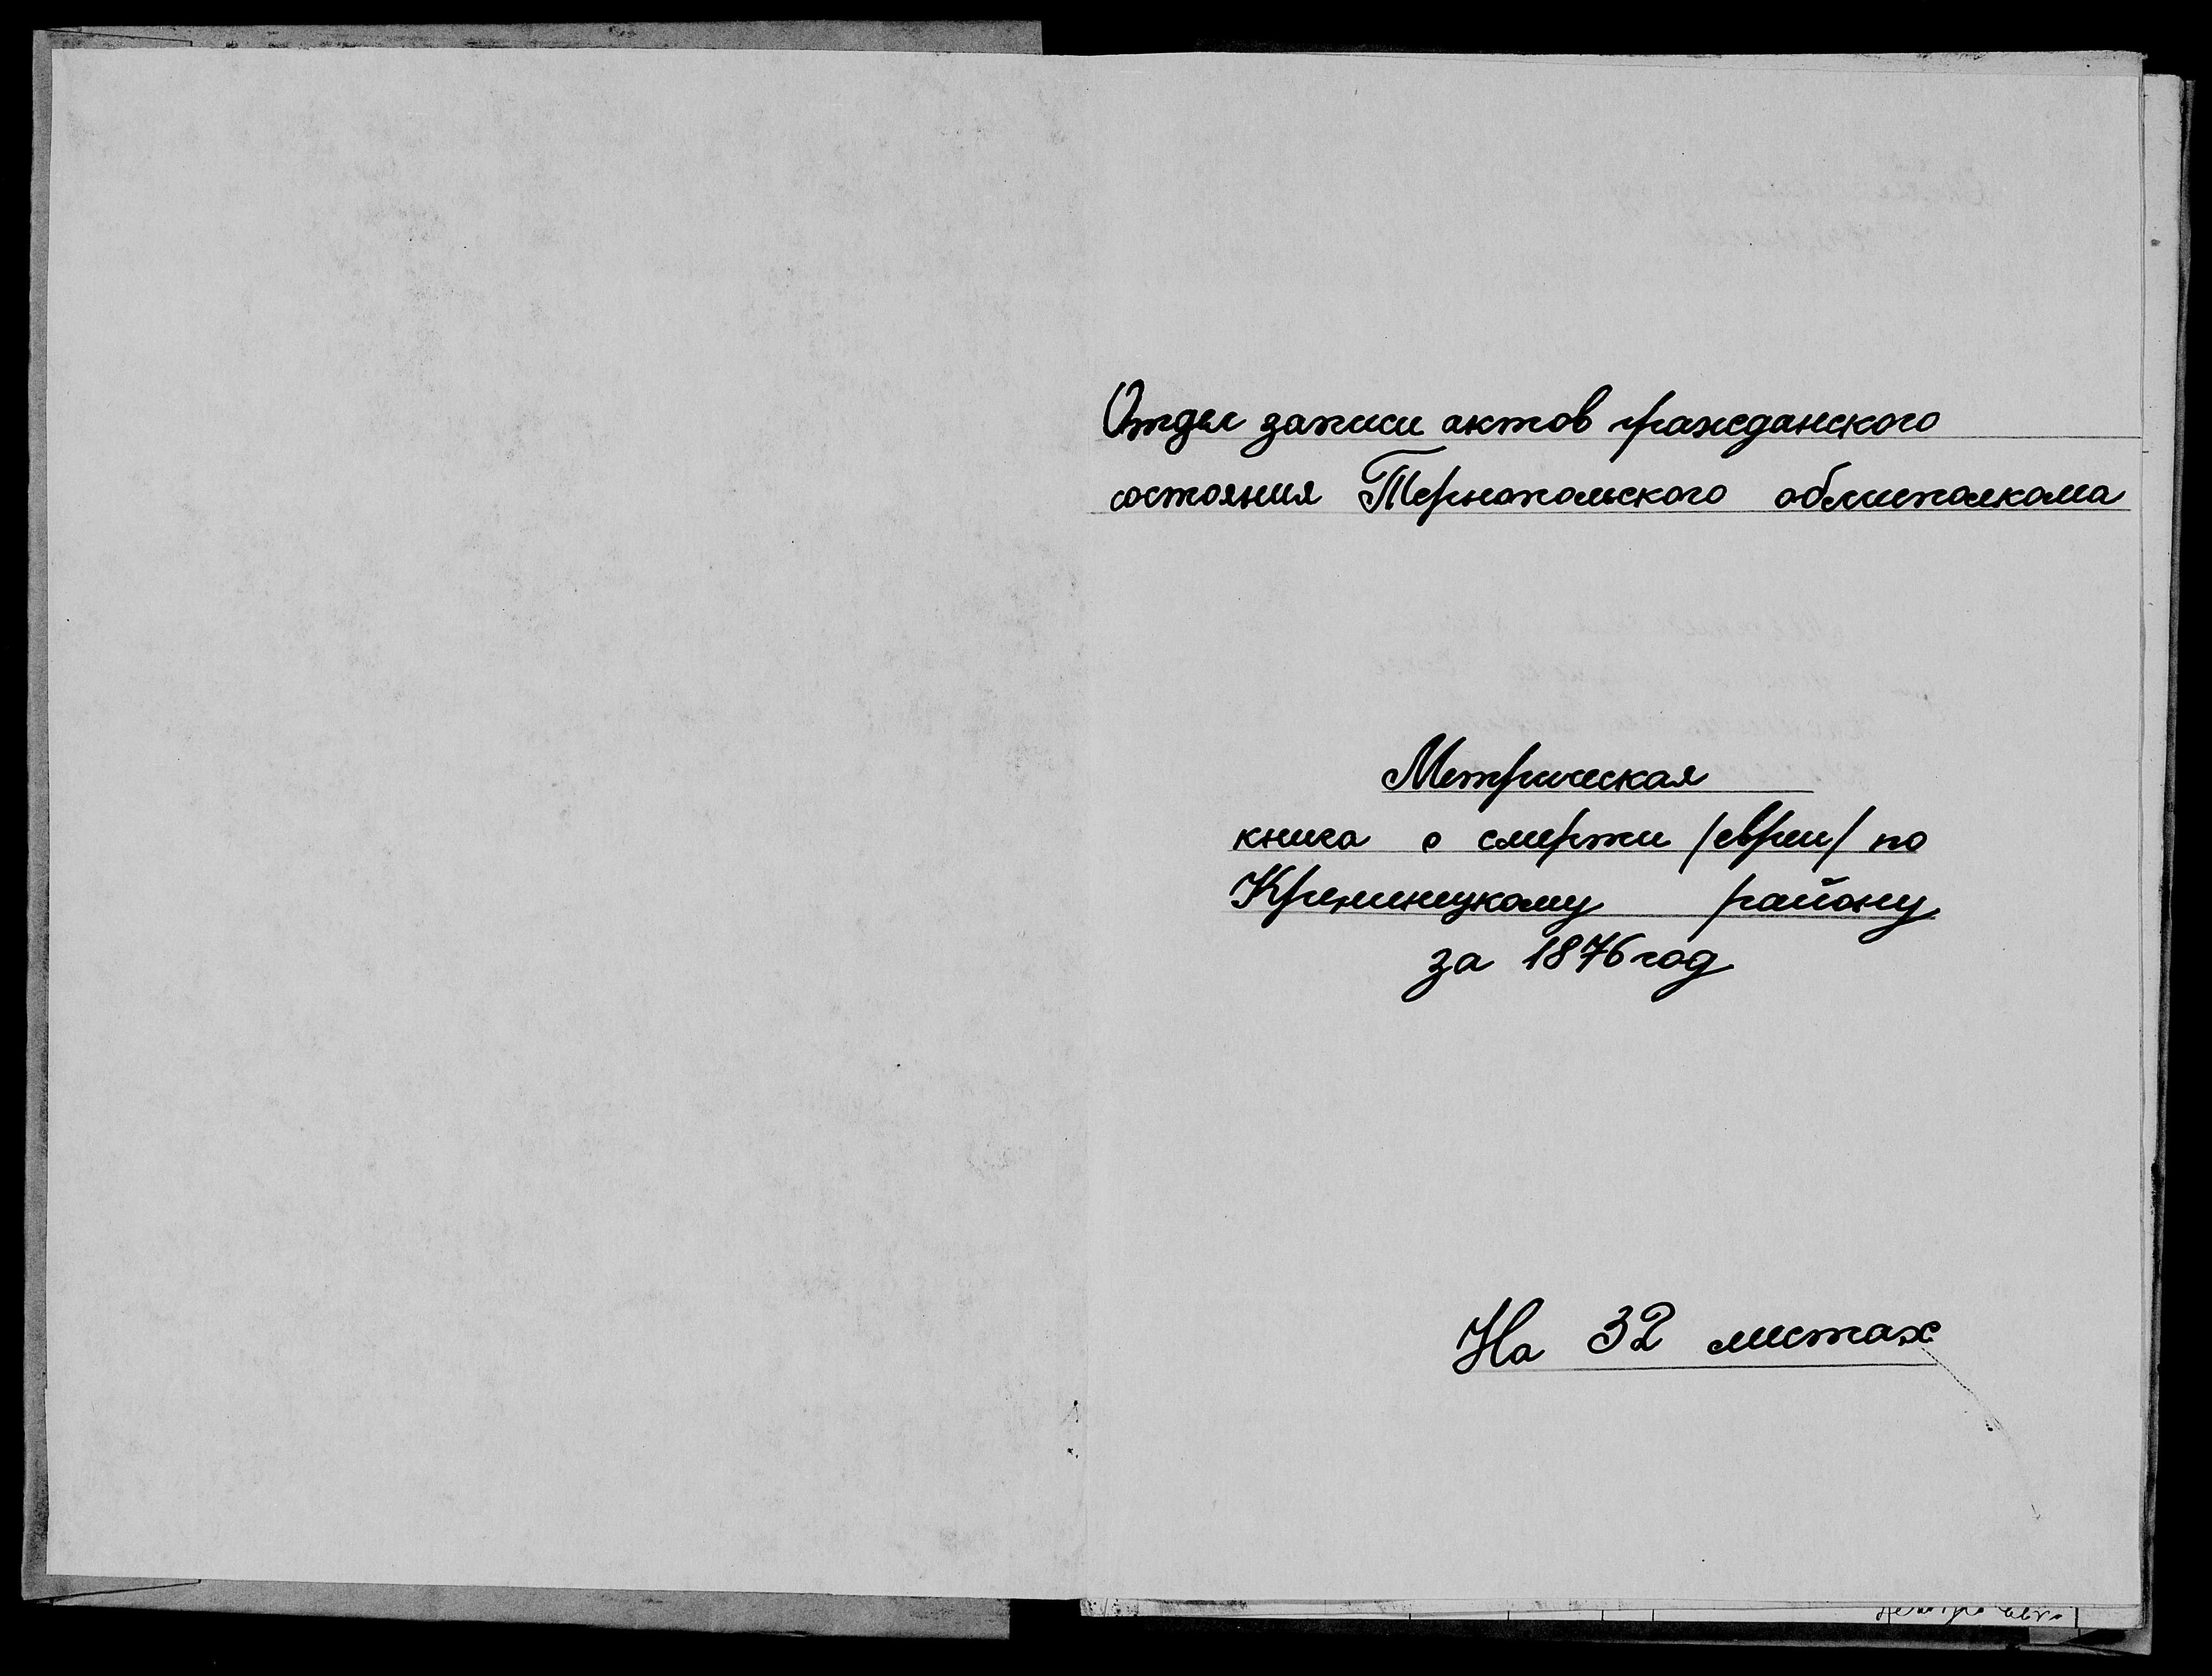 Отдел записи актов гражданского
состояния Тернопольского облисполкома
Метрическая
книга о смерти /евреи/ по
Кременецкому району
за 1876 год
На 32 листах